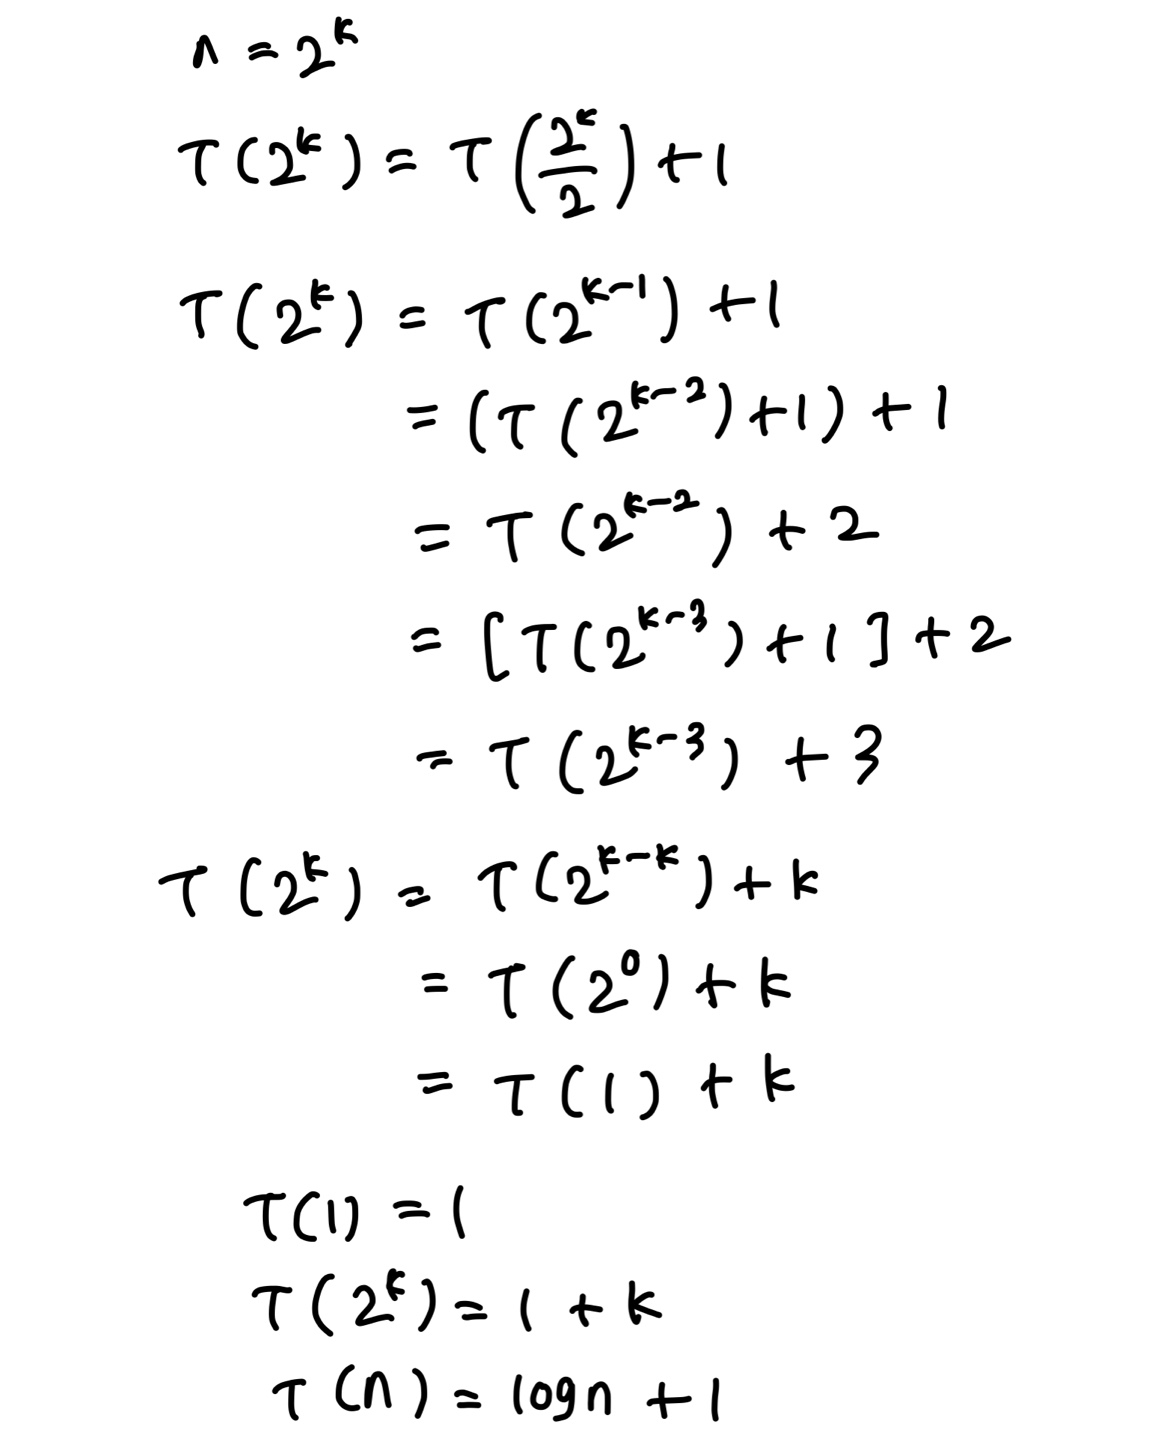 n = 2^k
T(2^k) = T(2^k/2) + 1
T(2^k) = T(2^{k-1}) + 1
= (T(2^{k-2}) + 1) + 1
= T(2^{k-2}) + 2
= [T(2^{k-3}) + 1] + 2
= T(2^{k-3}) + 3
T(2^k) = T(2^{k-k}) + k
= T(2^0) + k
= T(1) + k
T(1) = 1
T(2^k) = 1 + k
T(n) = log n + 1